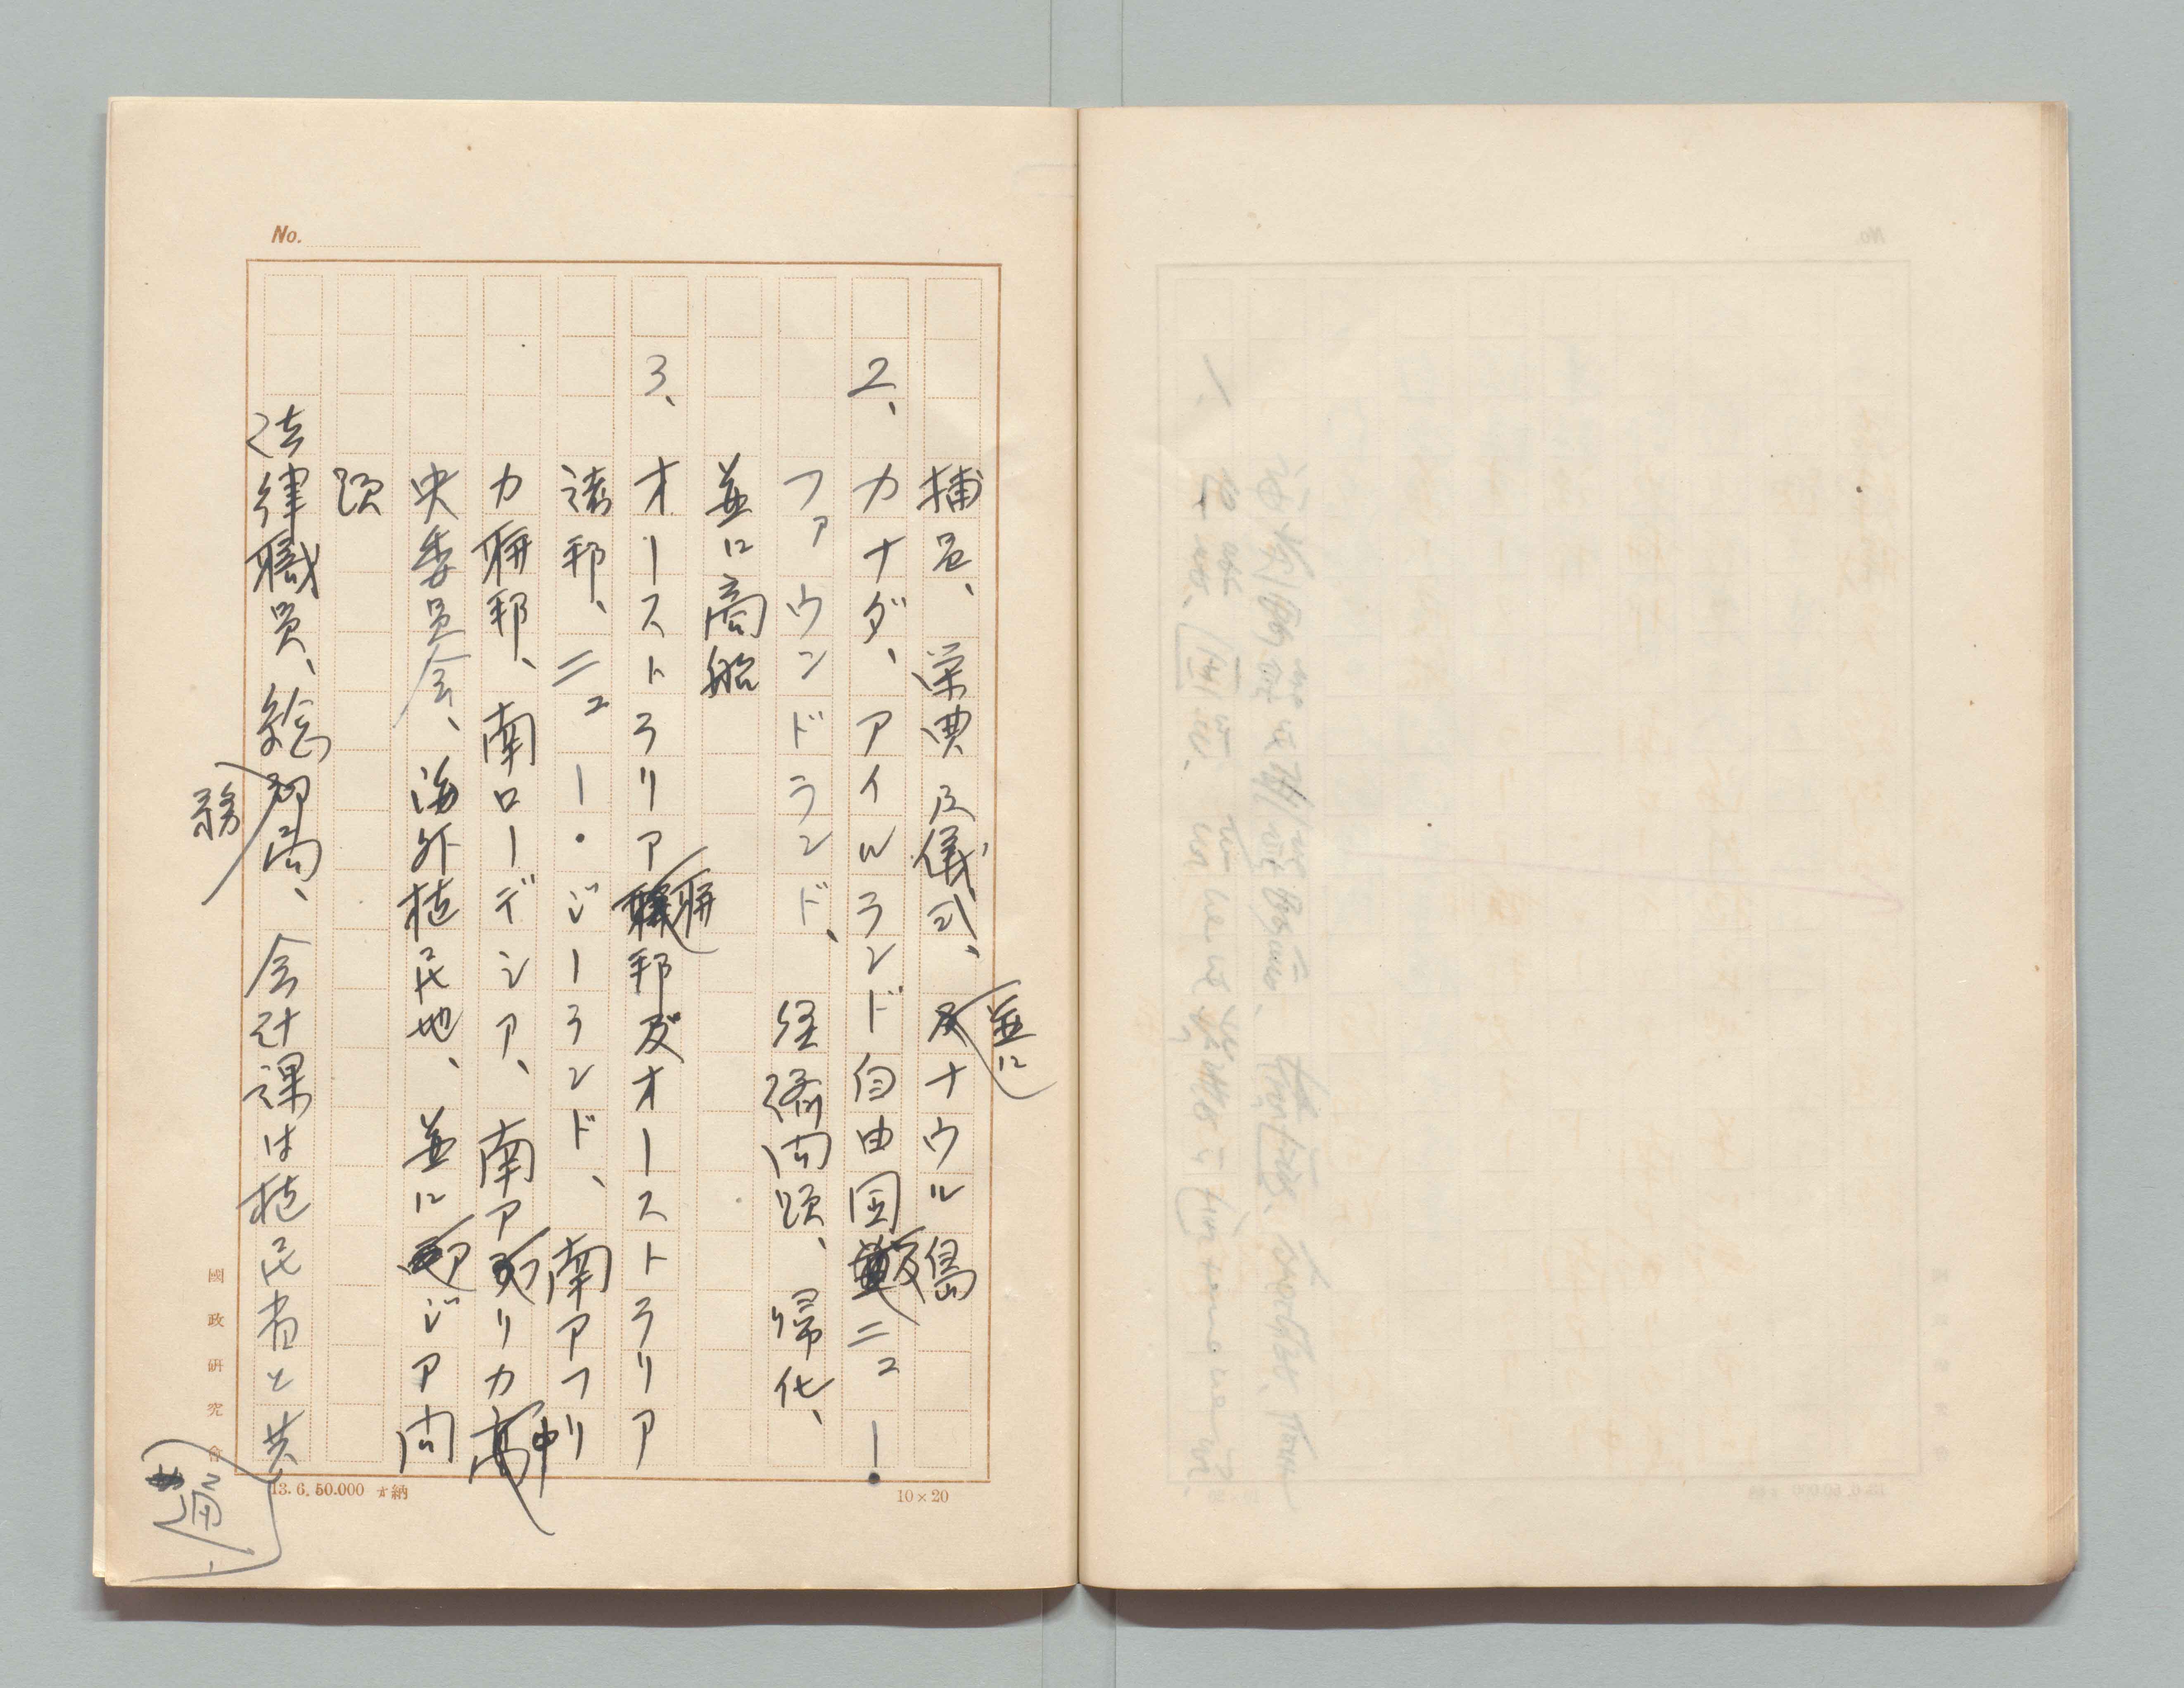 No.
捕虜、栄典及儀式、並にナウル島
2、カナダ、アイルランド自由国及ニュー・
ファウンドランド、経済問題、帰化、
並に商船
3、オーストラリア聯邦及オーストラリア
諸邦、ニュー・ジーランド、南アフリ
カ聯邦、南ローデシア、南アフリカ高中
央委員会、海外植民地、並にアジア問
題
法律職員、総務局、会計課は植民省と共
通
國政研究會
13.6.50.000 納
10×20